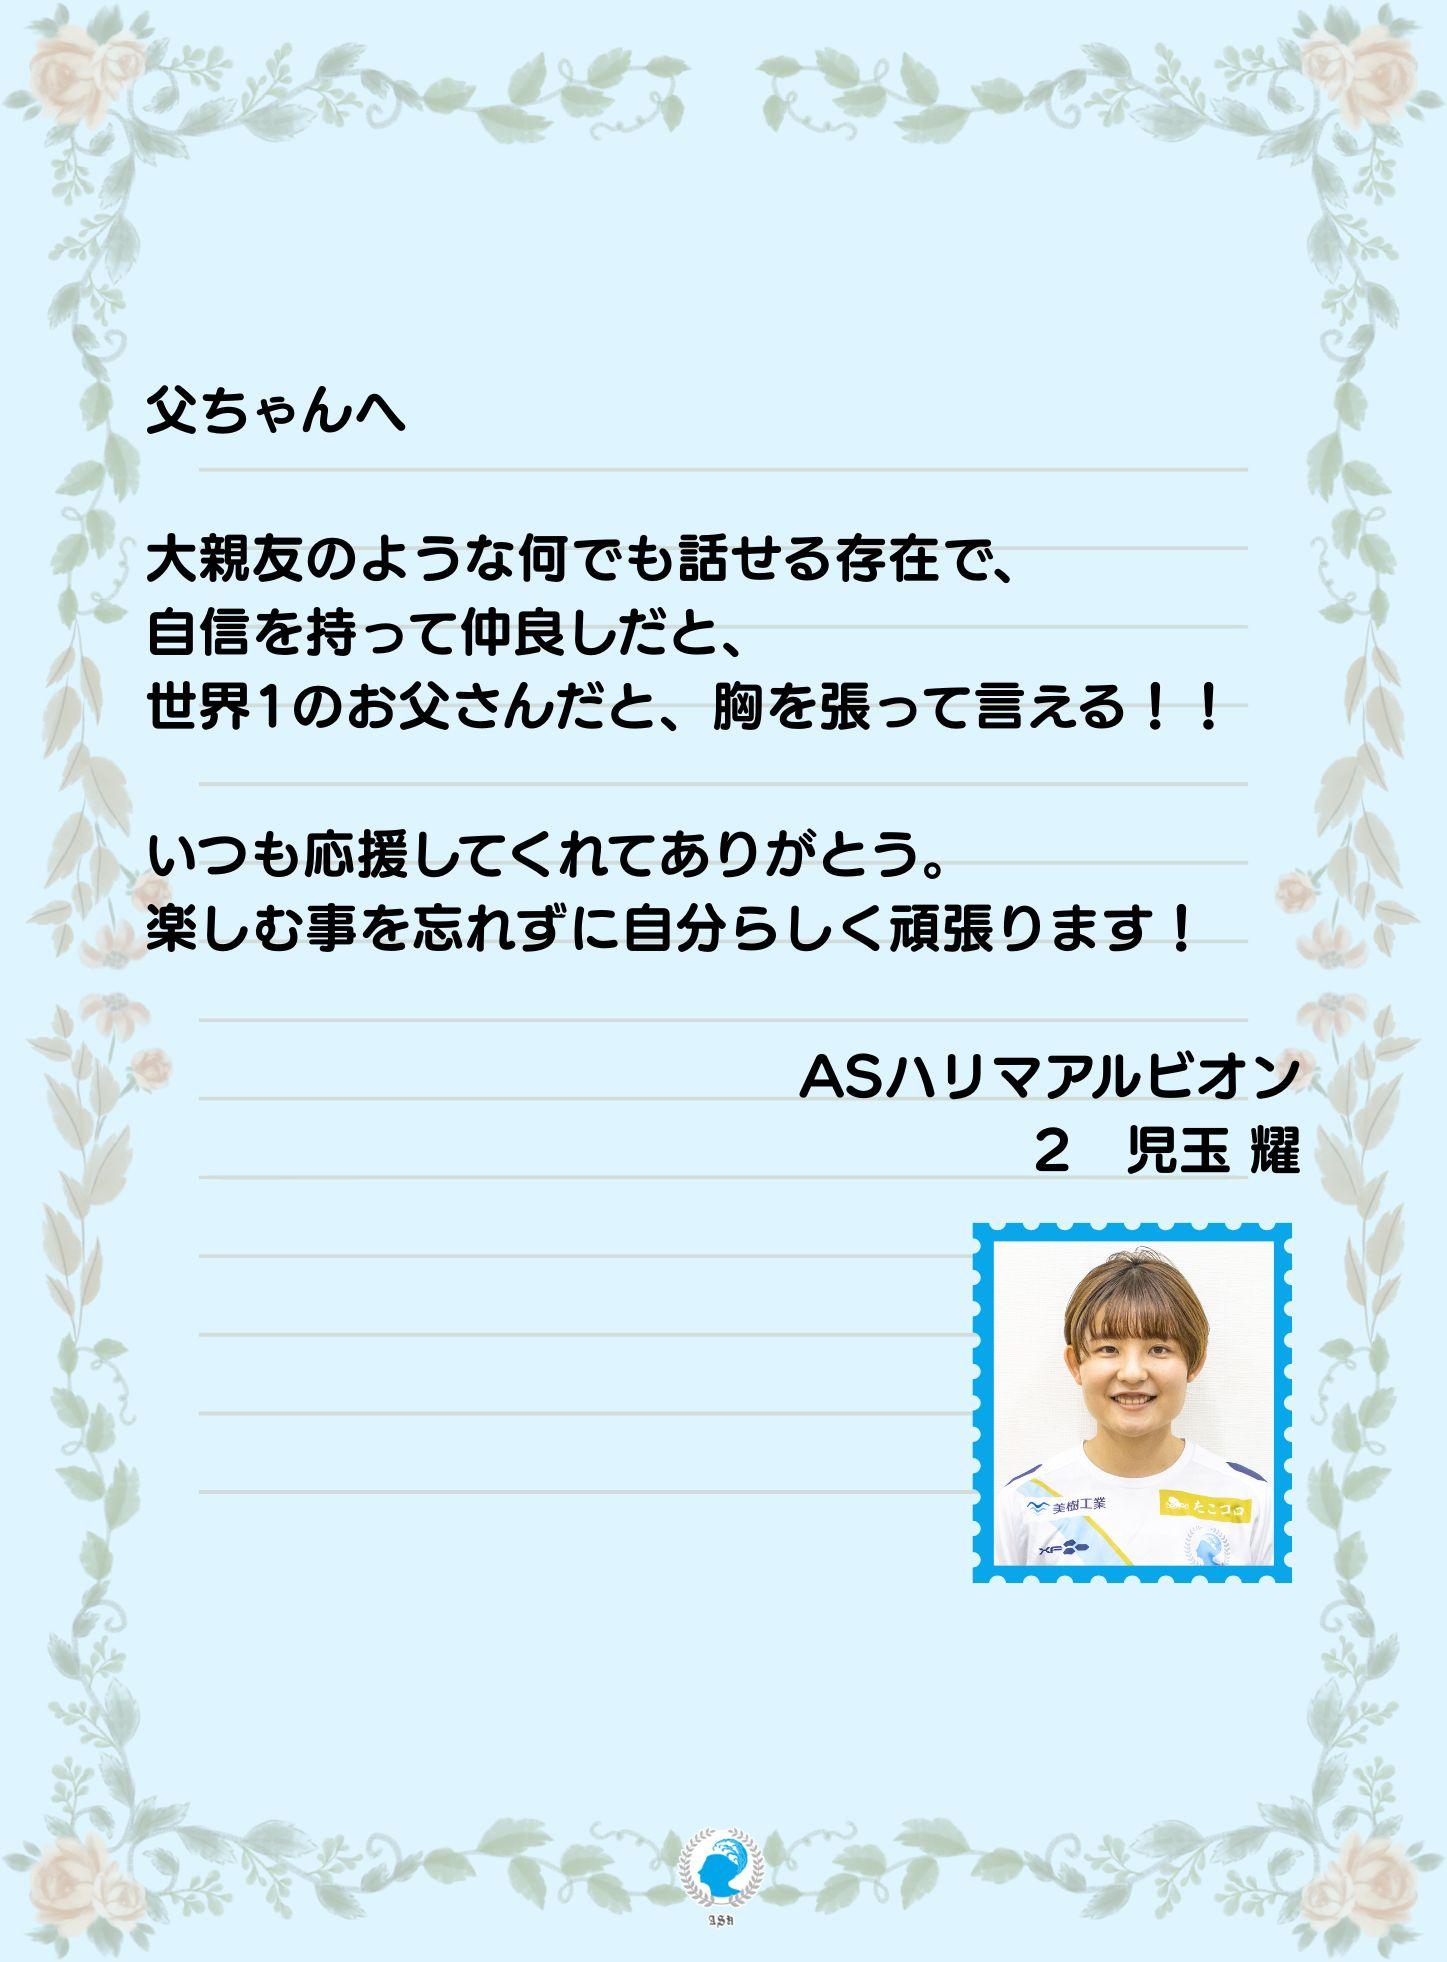 父ちゃんへ
大親友のような何でも話せる存在で、
自信を持って仲良しだと、
世界1のお父さんだと、胸を張って言える！！
いつも応援してくれてありがとう。
楽しむ事を忘れずに自分らしく頑張ります！
ASハリマアルビオン
2　児玉 耀
美樹工業
たこココ
ASH